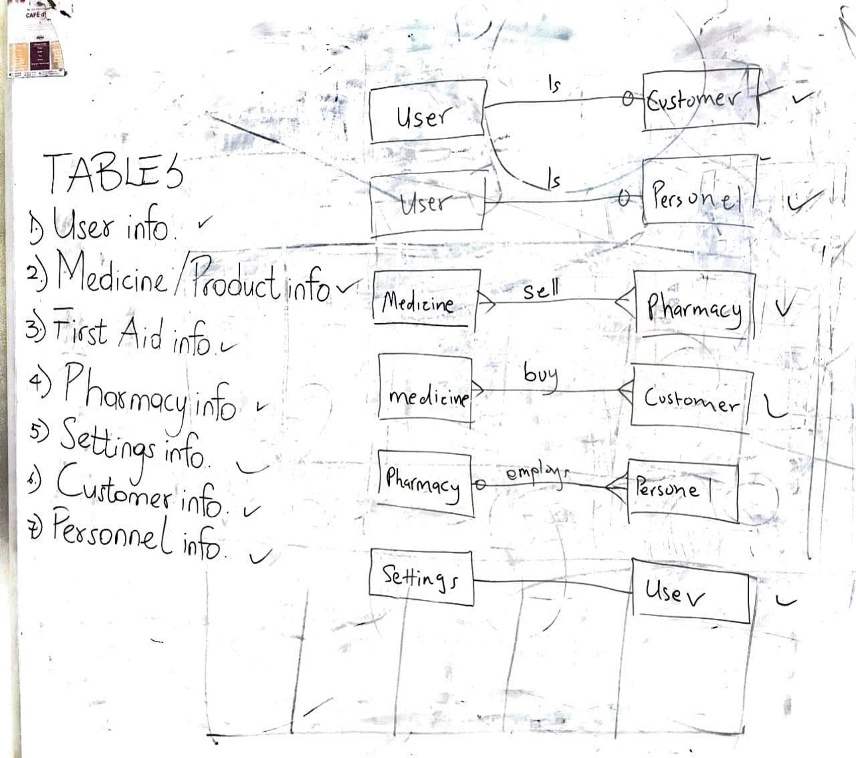 CAFÉ
TABLES
1) User info. ✓
2) Medicine/Product info ✓
3) First Aid info. ✓
4) Pharmacy info ✓
5) Settings info. ✓
6) Customer info. ✓
7) Personnel info. ✓
User Is Customer ✓
User Is Personel ✓
Medicine sell Pharmacy ✓
medicine buy Customer ✓
Pharmacy employs Personel
Settings User ✓